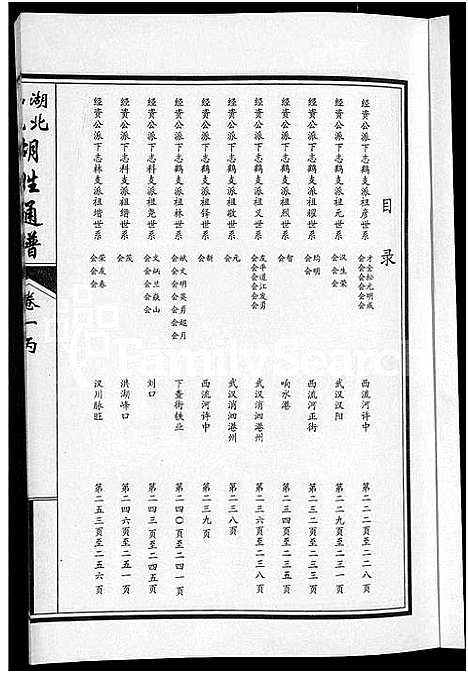 目录
经资公派下志鹤支派祖彦世系 才会 金会 松会 元会 明会 成会 西流河许中 第二二二页至二二八页
经资公派下志鹤支派祖元世系 汉会 生会 荣会 武汉汉阳 第二二九页至二三一页
经资公派下志鹤支派祖耀世系 均会 明会 西流河正街 第二三二页至二三三页
经资公派下志鹤支派祖烈世系 智会 响水港 第二三四页至二三五页
经资公派下志鹤支派祖义世系 友会 年会 道会 江会 发会 勇会 武汉消泗港州 第二三六页至二三八页
经资公派下志鹤支派祖敬世系 凡会 武汉消泗港州 第二三八页
经资公派下志鹤支派祖锋世系 新会 西流河许中 第二三九页
经资公派下志鹤支派祖林世系 斌会 文会 明会 英会 勇会 超会 月会 下查街铁业 第二四〇页至二四一页
经资公派下志科支派祖尧世系 文会 炳会 兰会 焱会 山会 刘口 第二四三页至二四五页
经资公派下志科支派祖缙世系 茂会 洪湖峰口 第二四六页至二五一页
经资公派下志林支派祖增世系 荣会 友会 春会 汉川脉旺 第二五三页至二五六页
湖北
胡姓通普
卷一丙
FamilySearch